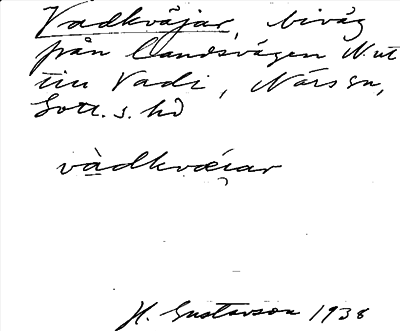 Vadkväjar, biväg
från landsvägen N. ut
till Vadi, När sn,
Gotl. s. hd
vàdkvœíar
H. Gustavson 1938